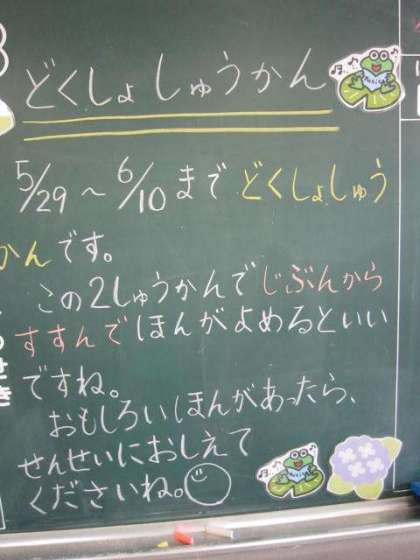 どくしょしゅうかん
5/29～6/10まで どくしょしゅう
かんです。
この2しゅうかんで じぶんから
すすんで ほんがよめるといい
ですね。
おもしろい ほんが あったら、
せんせいに おしえて
くださいね。